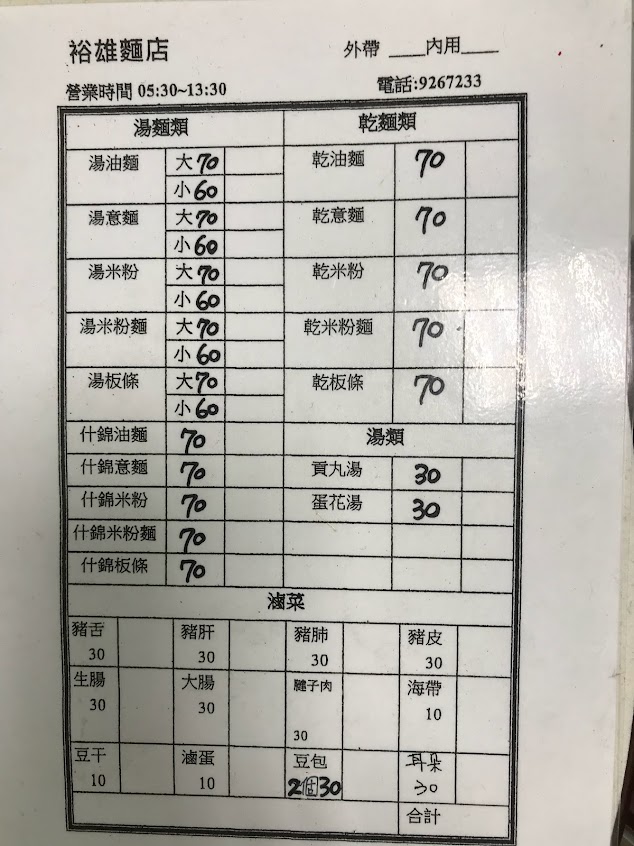 裕雄麵店
外帶 ____內用____
營業時間 05:30~13:30 電話:9267233
湯麵類 乾麵類
湯油麵 大 70 乾油麵 70
小 60
湯意麵 大 70 乾意麵 70
小 60
湯米粉 大 70 乾米粉 70
小 60
湯米粉麵 大 70 乾米粉麵 70
小 60
湯板條 大 70 乾板條 70
小 60
什錦油麵 70 湯類
什錦意麵 70 貢丸湯 30
什錦米粉 70 蛋花湯 30
什錦米粉麵 70
什錦板條 70
滷菜
豬舌 豬肝 豬肺 豬皮
30 30 30 30
生腸 大腸 腱子肉 海帶
30 30 30 10
豆干 滷蛋 豆包 耳朵
10 10 2個30 30
合計